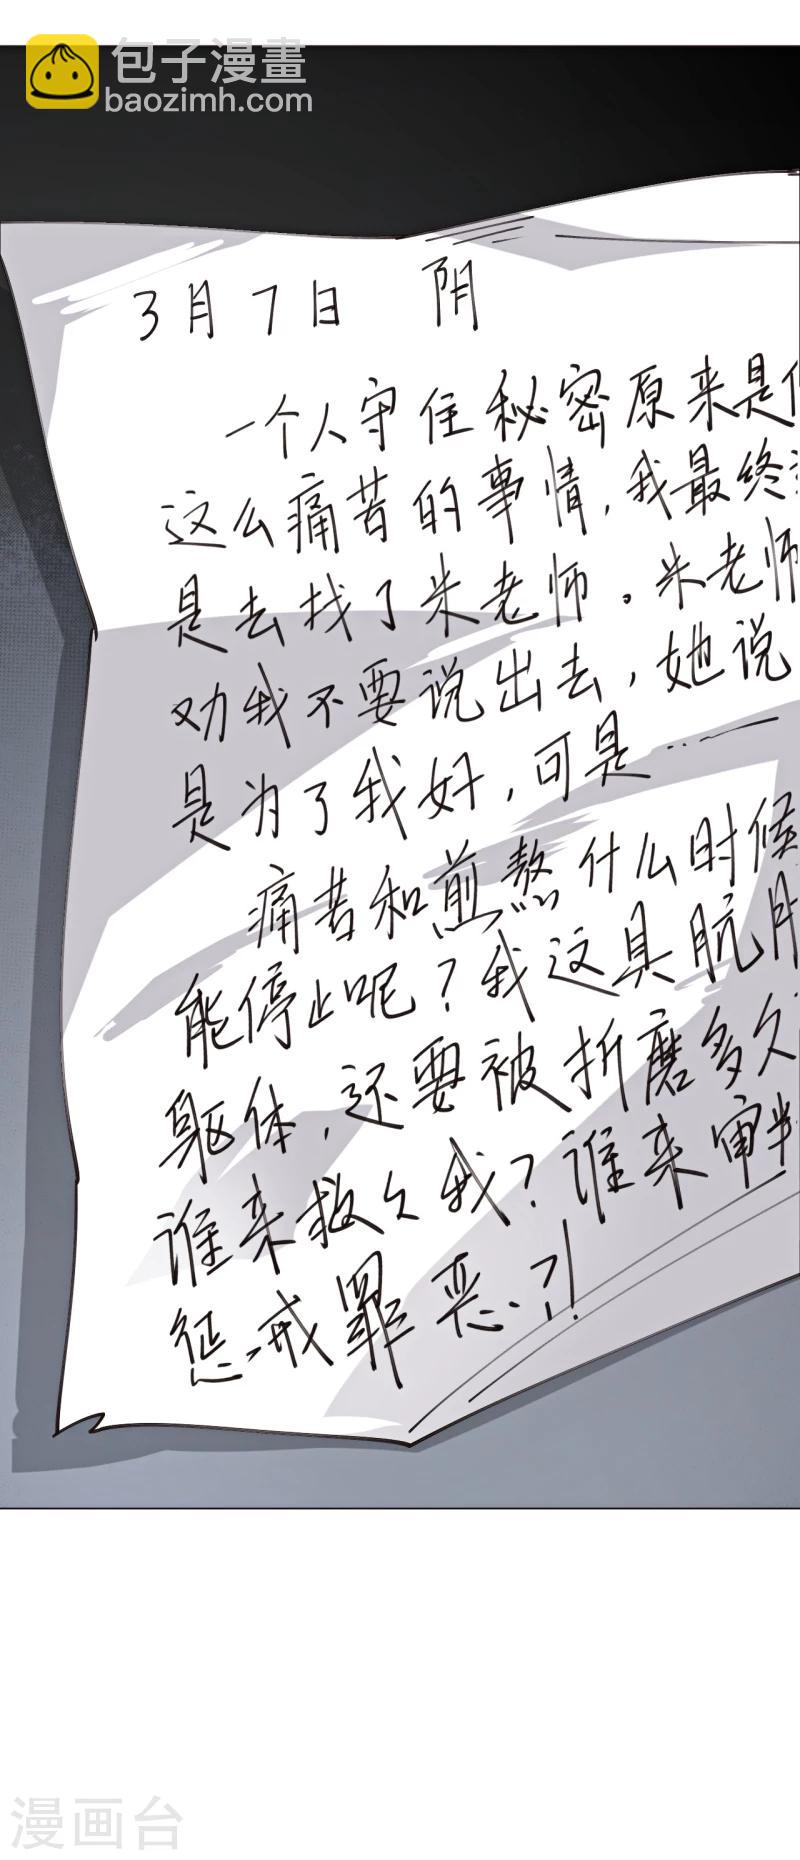 包子漫畫
baozimh.com
3月7日 阴
一个人守住秘密原来是
这么痛苦的事情，我最终
是去找了朱老师。朱老师
劝我不要说出去，她说
是为了我好，可是……
痛苦和煎熬什么时候
能停止呢？我这具肮
躯体，还要被折磨多久
谁来救久我？谁来审判
惩戒罪恶？！
漫画台